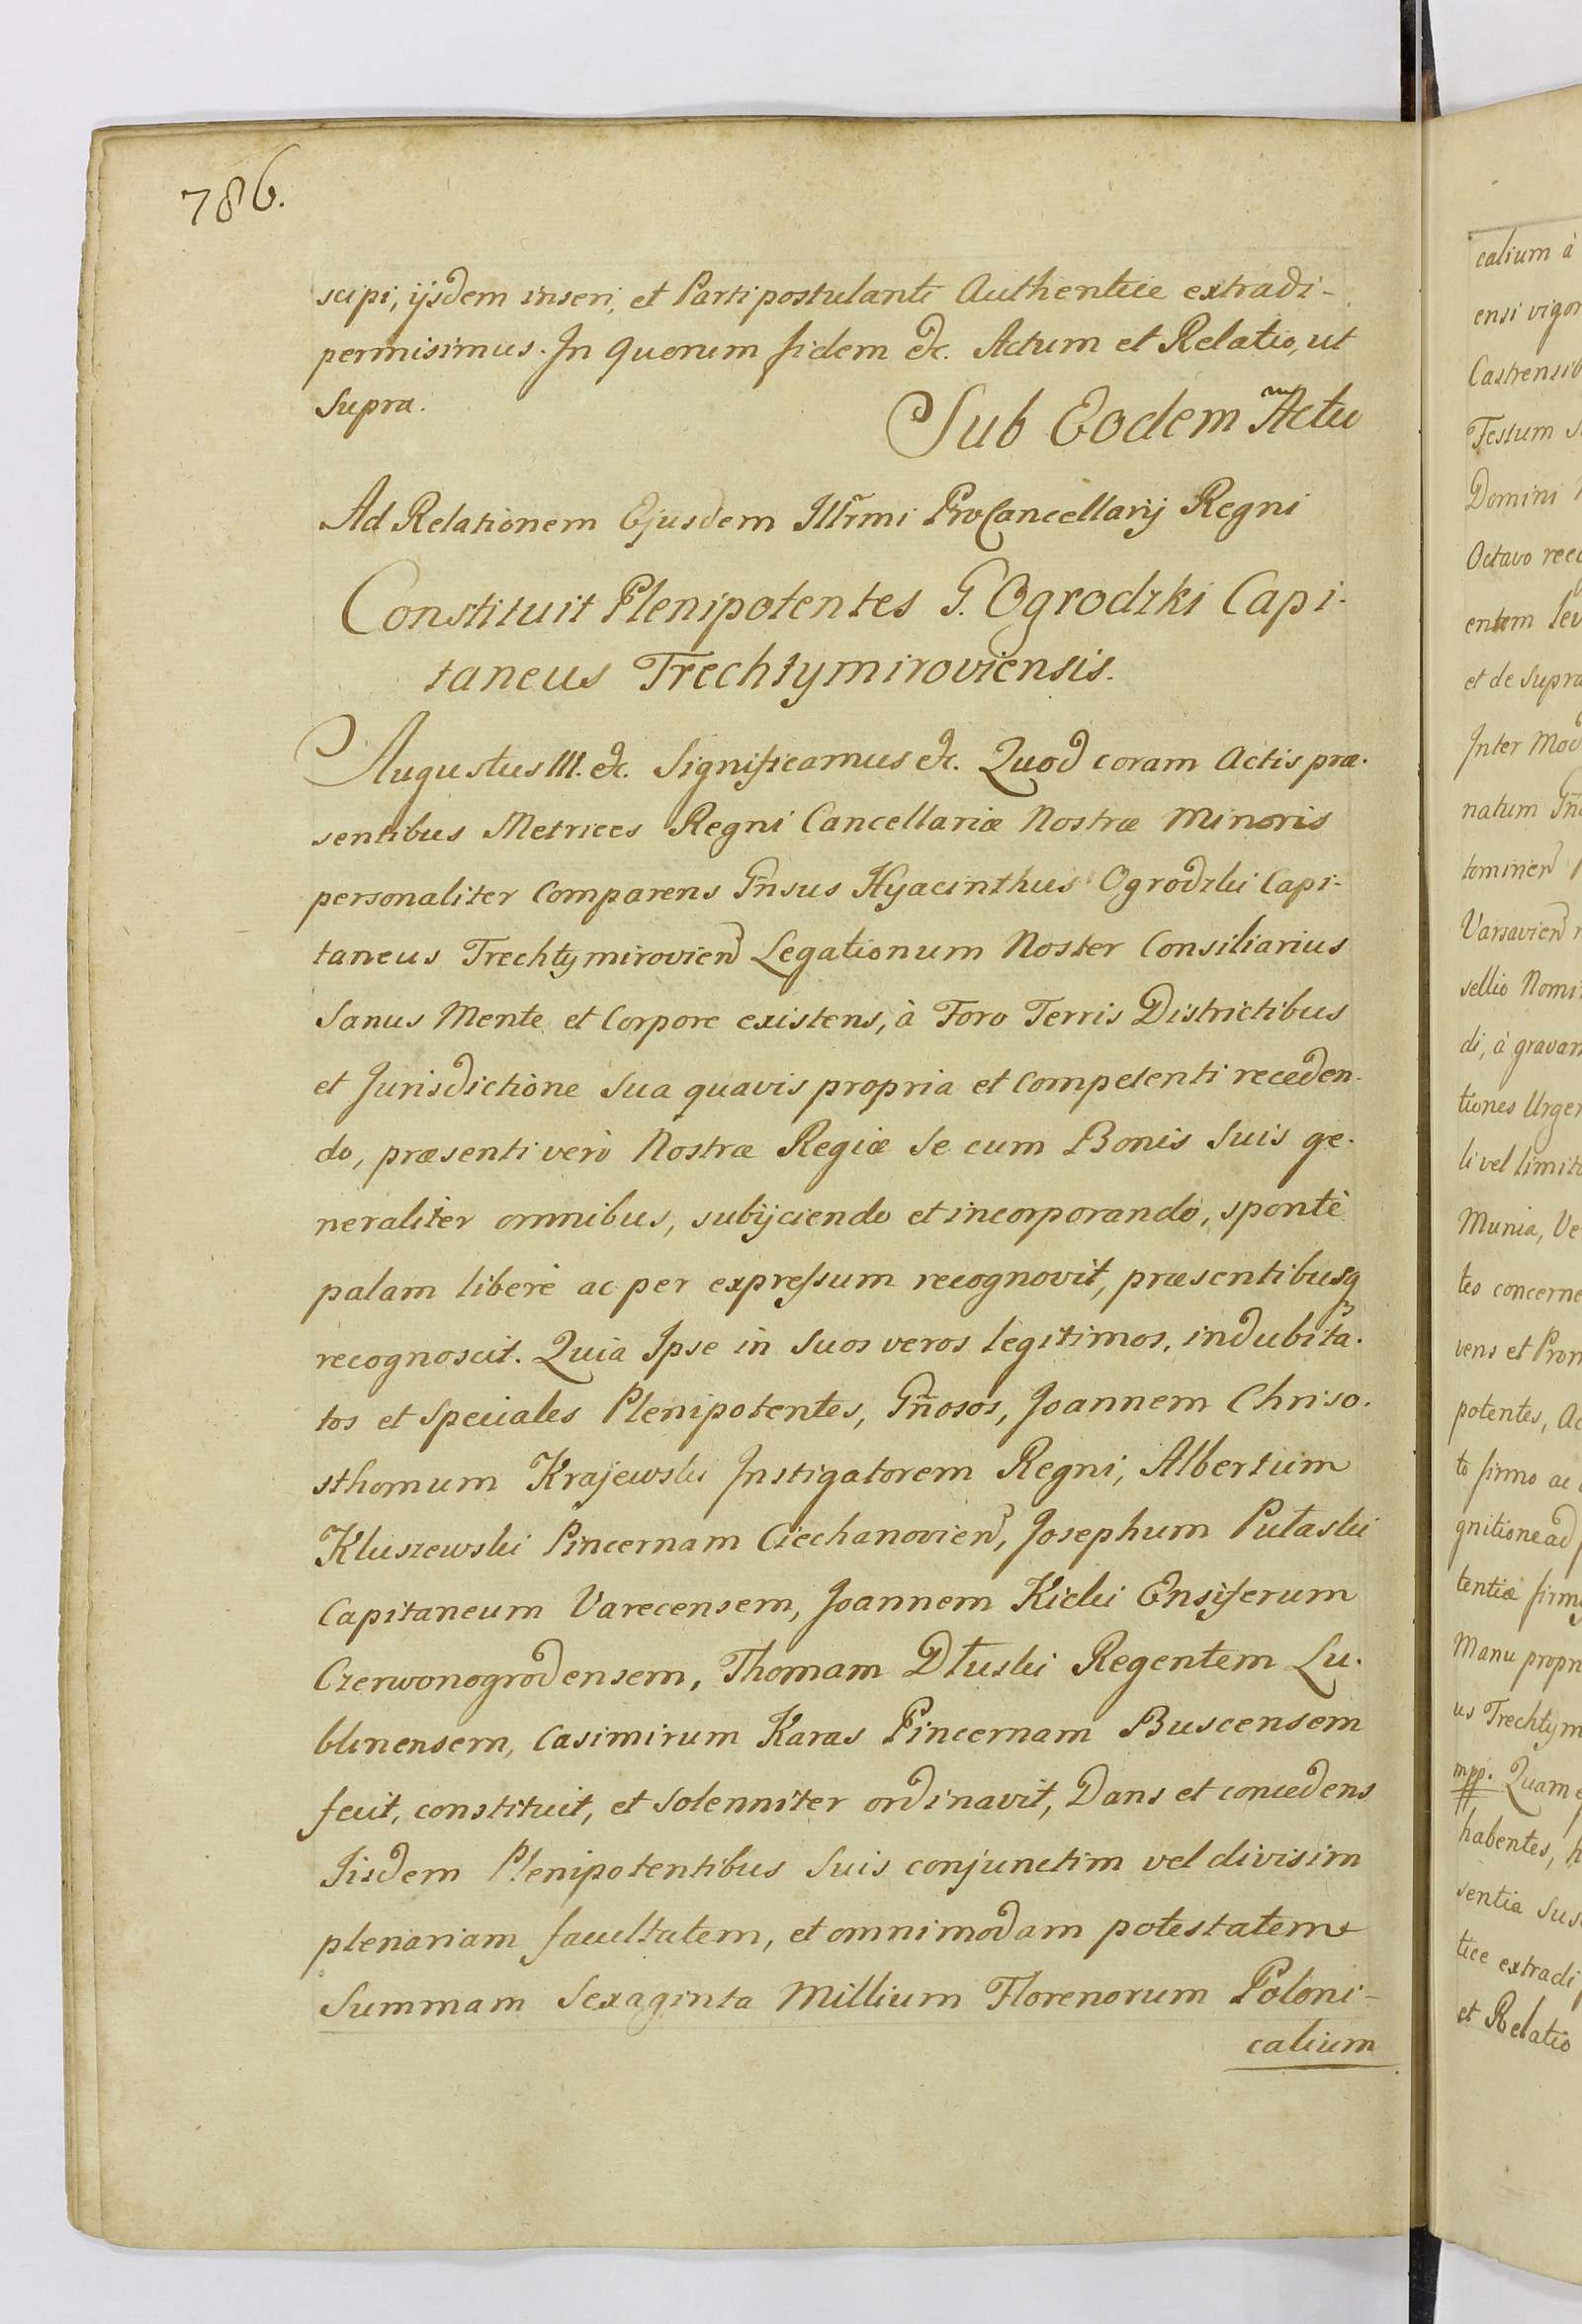 786.
scipi, ijsdem inseri, et Parti postulanti Authentice extradi-
permisimus. In quorum fidem &c. Actum et Relatio, ut
Supra.
Sub Eodem Actu
Ad Relationem Ejusdem Illr̃mi ProCancellarij Regni
Constituit Plenipotentes G. Ogrodzki Capi-
taneus Trechtymiroviensis.
Augustus III. &c. Significamus &c. Quod coram Actis præ-
sentibus Metrices Regni Cancellariæ Nostræ Minoris
personaliter Comparens Gñsus Hyacinthus Ogrodzki Capi-
taneus Trechtymirovien Legationum Noster Consiliarius
Sanus Mente et Corpore existens, à Foro Terris Districtibus
et Jurisdictione Sua quavis propria et competenti receden-
do, præsenti verò Nostræ Regiæ Se cum Bonis Suis ge-
neraliter omnibus, subijciendo et incorporando, spontè
palam liberè ac per expressum recognovit, præsentibusq
recognoscit. Quia Ipse in Suos veros legitimos, indubita-
tos et Speciales Plenipotentes, Gñosos, Joannem Chriso-
sthomum Krajewski Instigatorem Regni, Albertum
Kluszewski Pincernam Ciechanovien, Josephum Pułaski
Capitaneum Varecensem, Joannem Kicki Ensiferum
Czerwonogrodensem, Thomam Dłuski Regentem Lu-
blinensem, Casimirum Karas Pincernam Buscensem
fecit, constituit, et Solenniter ordinavit, Dans et concedens
Iisdem Plenipotentibus Suis conjunctim vel divisim
plenariam facultatem, et omnimodam potestatem
Summam Sexaginta Millium Florenorum Poloni-
calium
calium à
ensi vigor
Castrensib
Festum S
Domini
Octavo rec
entem
et de Supra
Inter
natum
Varsavien
sellio Nomi
di, à gravam
tiones Urgen
li vel limit
Munia, Ve
tes concerne
vens et Pron
potentes, Ac
to firmo ac
gnitione ad
tentiæ firm
Manu propri
us Trechtym
mpp. Quam
habentes, h
sentia Sus
tice extradi
et Relatio